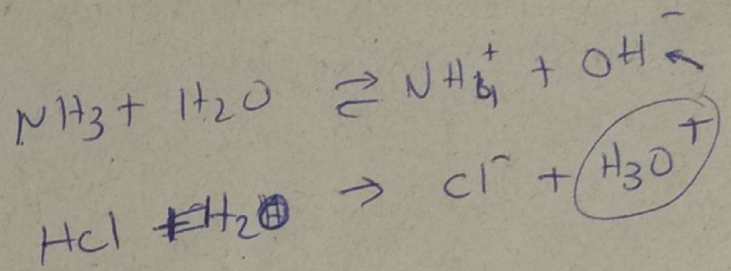 NH₃ + H₂O ⇌ NH₄⁺ + OH⁻
HCl + H₂O → Cl⁻ + H₃O⁺